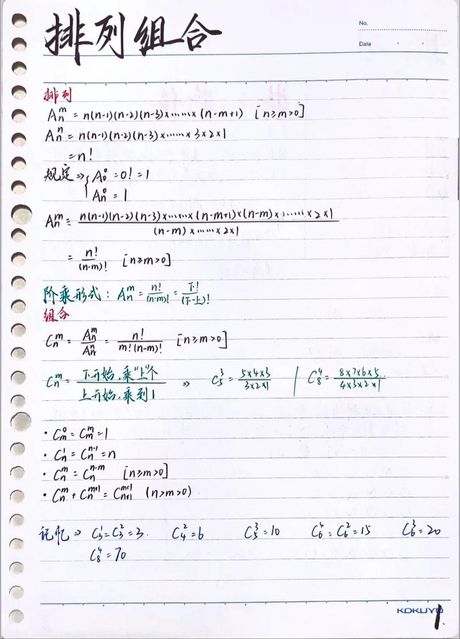 排列组合
No.
Date
排列
Aₙᵐ = n(n-1)(n-2)(n-3)×……×(n-m+1) [n≥m>0]
Aₙⁿ = n(n-1)(n-2)(n-3)×……×3×2×1
= n!
规定⇒{A₀⁰=0!=1
Aₙ⁰=1
Aₙᵐ = n(n-1)(n-2)(n-3)×……×(n-m+1)×(n-m)×……×2×1 / (n-m)×……×2×1
= n!/(n-m)! [n≥m>0]
阶乘形式: Aₙᵐ = n!/(n-m)! = 下!/(下-上)!
组合
Cₙᵐ = Aₙᵐ/Aₘᵐ = n!/m!(n-m)! [n≥m>0]
Cₙᵐ = 下开始,乘"上"个/上开始,乘到1 ⇒ C₅³ = 5×4×3/3×2×1 | C₈⁴ = 8×7×6×5/4×3×2×1
· Cₘ⁰ = Cₘᵐ = 1
· Cₙ¹ = Cₙⁿ⁻¹ = n
· Cₙᵐ = Cₙⁿ⁻ᵐ [n≥m>0]
· Cₙᵐ + Cₙᵐ⁺¹ = Cₙ₊₁ᵐ⁺¹ (n>m>0)
记忆⇒ C₃¹=C₃²=3 C₄²=6 C₅³=10 C₆⁴=C₆²=15 C₆³=20
C₈⁴=70
KOKUYO
1